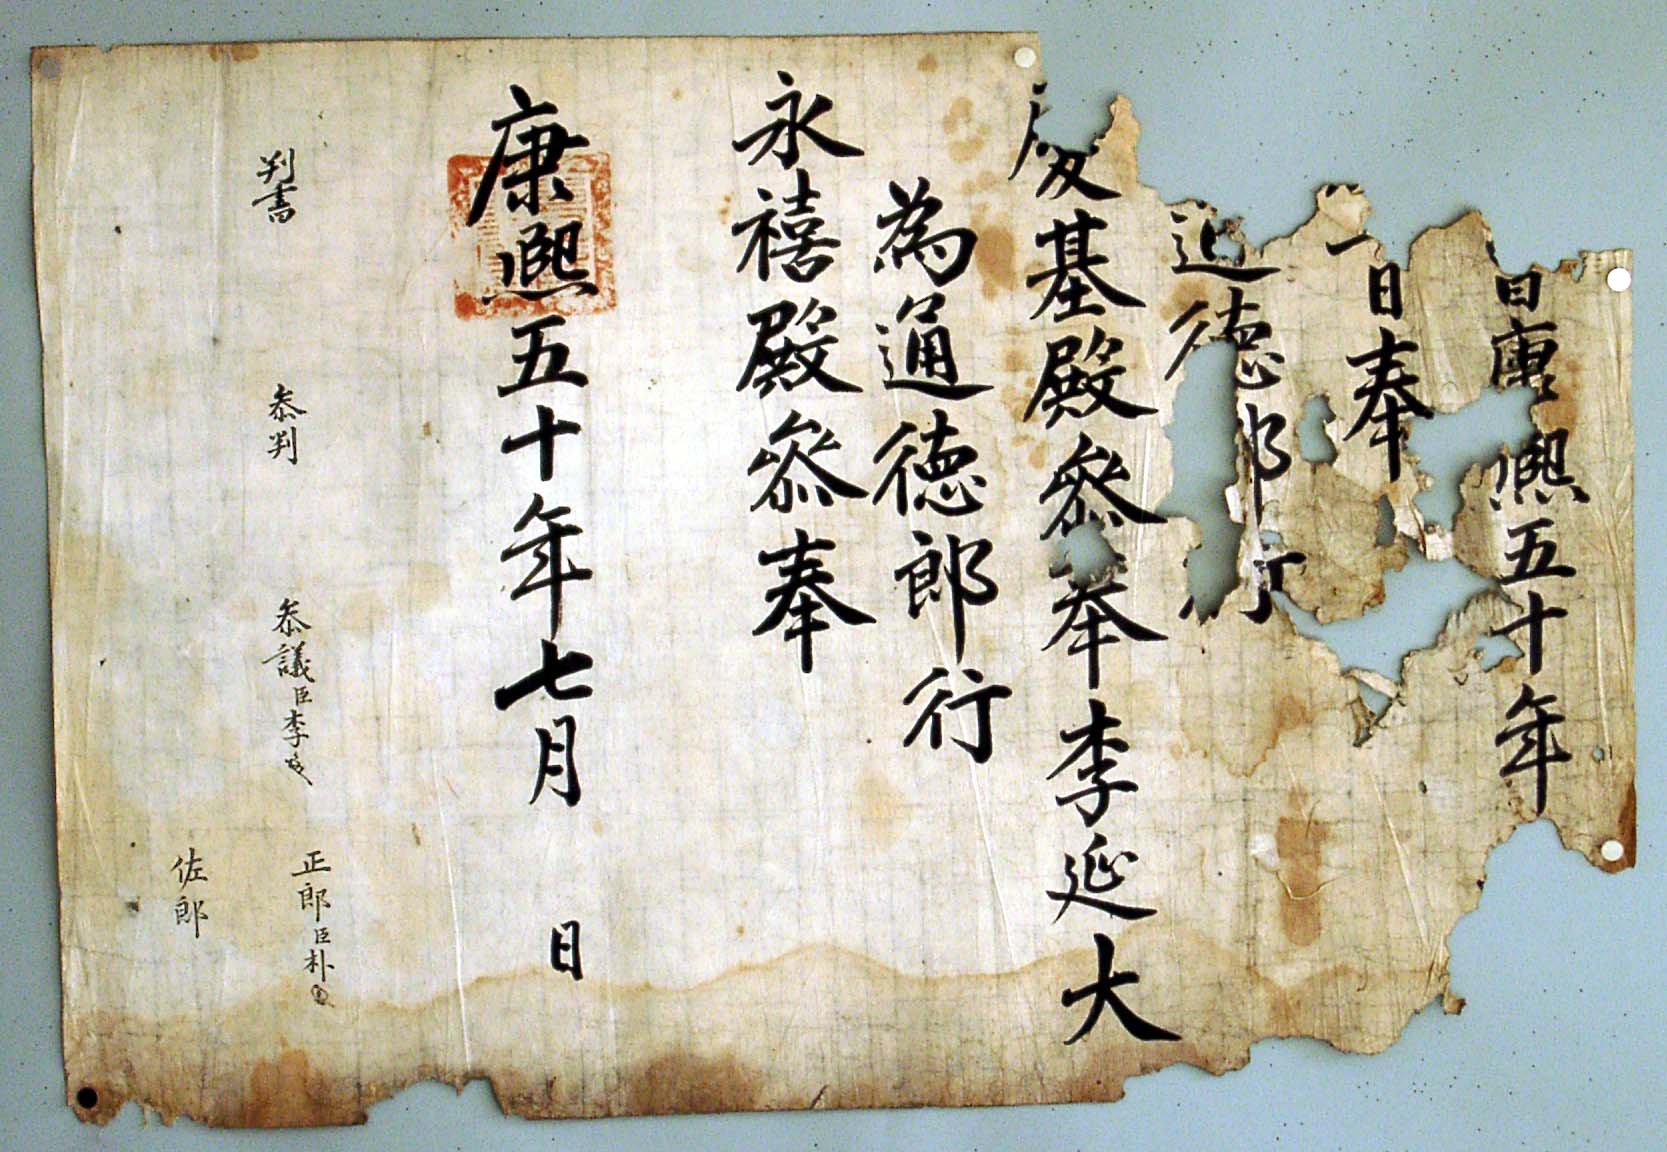 康熙五十年
一日奉
通徳郎行
慶基殿叅奉李延大
為通徳郎行
永禧殿叅奉
康熙五十年七月 日
判書
叅判
叅議臣李
正郎臣朴
佐郎